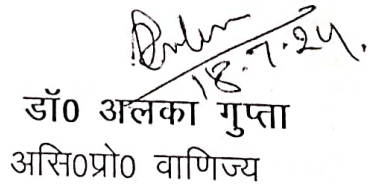 18.7.24.
डॉ0 अलका गुप्ता
असि0प्रो0 वाणिज्य